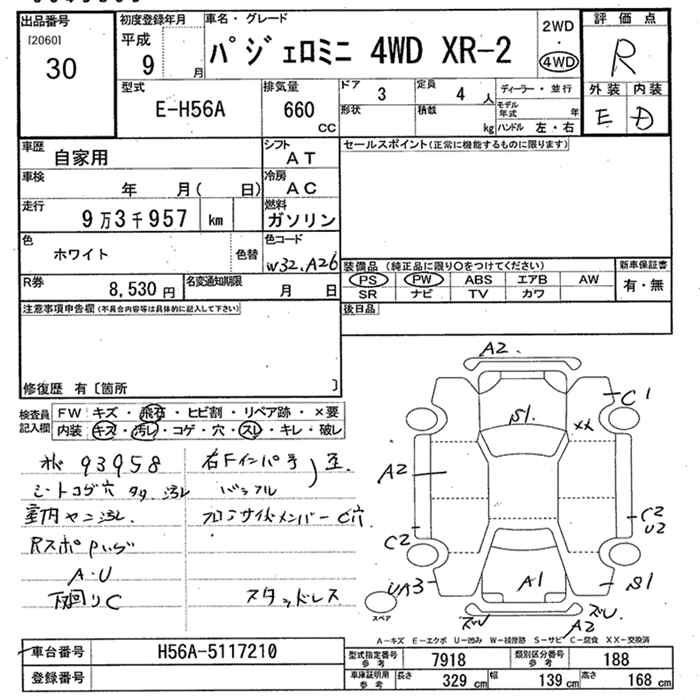 出品番号
[2060]
30
初度登録年月
平成
9 月
車名・グレード
パジェロミニ 4WD XR-2
2WD
・
4WD
評価点
R
外装 内装
E D
型式
E-H56A
排気量
660 cc
ドア 3
形状
定員 4 人
積載 kg
ディーラー・並行
モデル年式 年
ハンドル 左・右
車歴
自家用
シフト
AT
車検
年 月( 日)
冷房
AC
走行
9万3千957 km
燃料
ガソリン
色
ホワイト
色替
色コード
W32.A26
R券
8,530 円
名変通知期限
月 日
セールスポイント(正常に機能するものに限ります)
装備品(純正品に限り○をつけてください)
PS PW ABS エアB AW
SR ナビ TV カワ
新車保証書
有・無
後日品
注意事項申告欄(不具合内容等は具体的に記入して下さい)
修復歴 有〔箇所 〕
検査員記入欄
FW キズ・飛石・ヒビ割・リペア跡・×要
内装 キズ・汚レ・コゲ・穴・スレ・キレ・破レ
93958
シートコゲ穴
室内ヤニ汚レ
A・U
下回りC
右Fインパネ
フロントサイドメンバーC穴
スタッドレス
A2.
C1
S1.
XX
A2
C2
C2
U2
UA3
A1
S1
A2
スペア
A-キズ E-エクボ U-凹み W-補修跡 S-サビ C-腐食 XX-交換済
車台番号
H56A-5117210
登録番号
型式指定番号 参考
7918
類別区分番号 参考
188
車庫証明用 参考
長さ 329 cm
幅 139 cm
高さ 168 cm